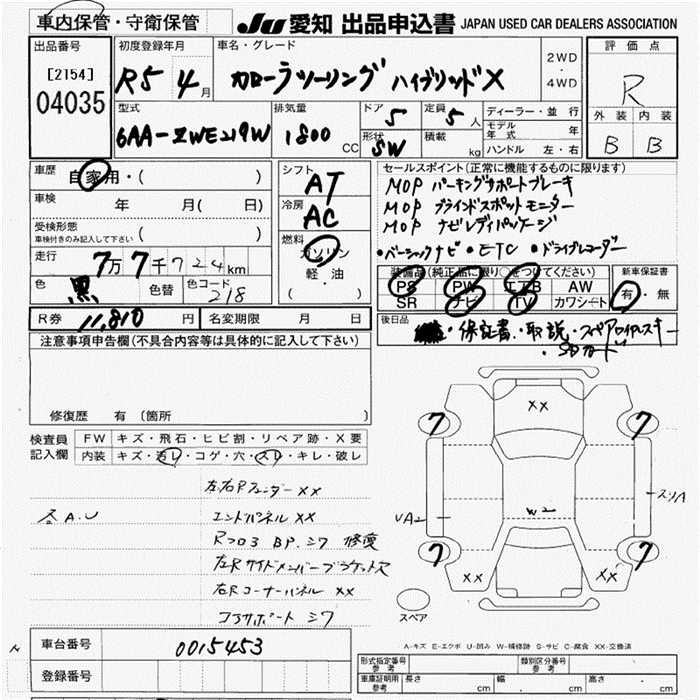 車内保管・守衛保管
JU 愛知 出品申込書 JAPAN USED CAR DEALERS ASSOCIATION
出品番号
[2154]
04035
初度登録年月
R5 4月
車名・グレード
カローラツーリング ハイブリッドX
2WD
・
4WD
評価点
R
外装 内装
B B
型式
6AA-ZWE219W
排気量
1800 CC
ドア
5
形状
SW
定員
5人
積載
kg
ディーラー・並行
モデル年式 年
ハンドル 左・右
車歴
自家用・( )
車検
年 月( 日)
受検形態
車検付きのみ記入して下さい ( )
走行
7万7千724km
色
黒
色替
色コード
218
シフト
AT
冷房
AC
燃料
ガソリン
軽・油
( )
セールスポイント(正常に機能するものに限ります)
MOP パーキングサポートブレーキ
MOP ブラインドスポットモニター
MOP ナビレディパッケージ
・ベーシックナビ ・ETC ・ドライブレコーダー
装備品(純正品に限り○をつけてください)
PS PW エアB AW
SR ナビ TV カワシート
新車保証書
有・無
R券 11,810 円
名変期限 月 日
後日品
・保証書・取説・スペアロイヤルスキー
・SDカード
注意事項申告欄(不具合内容等は具体的に記入して下さい)
修復歴 有(箇所 )
検査員
記入欄
FW キズ・飛石・ヒビ割・リペア跡・X要
内装 キズ・汚レ・コゲ・穴・スレ・キレ・破レ
左右Rフェンダー XX
A.U エンドパネル XX
Rフロア BP.シワ 修復
左Rサイドメンバーブラケット
右Rコーナーパネル XX
コアサポート シワ
XX
7 7
スリA
UA2
W2
7 7
XX XX
スペア
車台番号
0015453
登録番号
A-キズ E-エクボ U-凹み W-補修跡 S-サビ C-腐食 XX-交換済
形式指定番号
参考
類別区分番号
参考
車庫証明用
参考
長さ cm 幅 cm 高さ cm